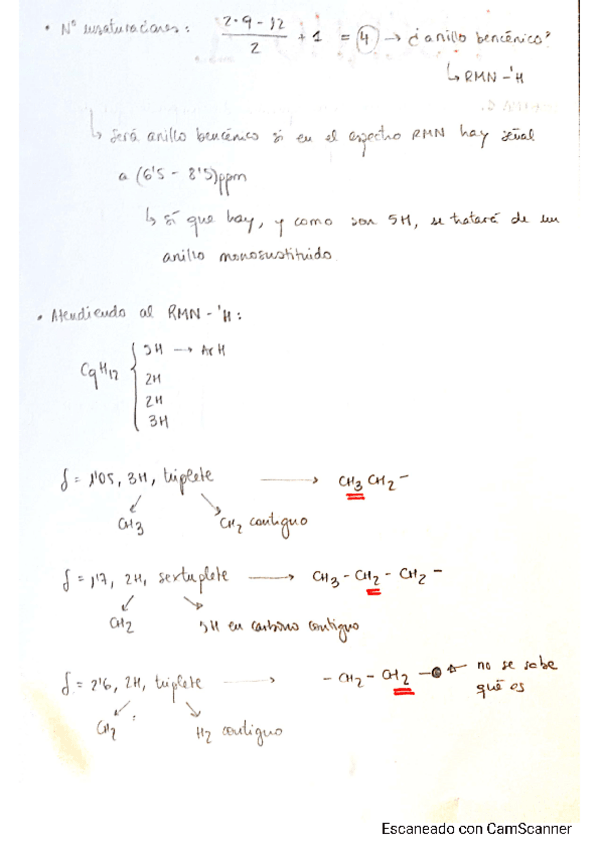 • Nº insaturaciones: (2·9-12)/2 + 1 = 4 → ¿anillo bencénico?
↳ RMN-¹H
↳ Será anillo bencénico si en el espectro RMN hay señal
a (6'5 - 8'5)ppm
↳ sí que hay, y como son 5H, se tratará de un
anillo monosustituido.
• Atendiendo al RMN-¹H:
C9H12 { 5H → ArH
2H
2H
3H
δ = 1'05, 3H, triplete → CH3CH2-
CH3 CH2 contiguo
δ = 1'7, 2H, sextuplete → CH3-CH2-CH2-
CH2 5H en carbono contiguo
δ = 2'6, 2H, triplete → -CH2-CH2-● no se sabe
qué es
CH2 H2 contiguo
Escaneado con CamScanner